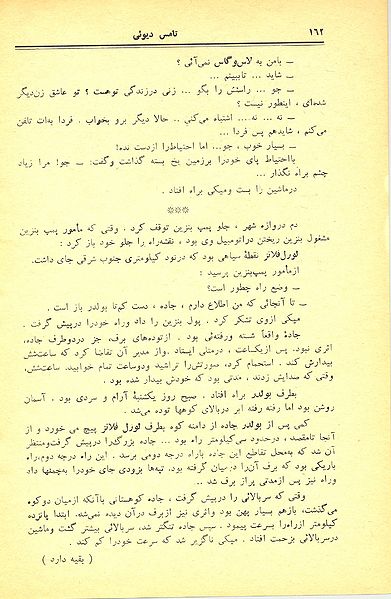 ۱۶۲ تامس دیوئی
ــ بامن به لاس‌وگاس نمی‌آئی ؟
ــ شاید ... تاببینم ...
ــ جو ... راستش را بگو ... زنی درزندگی توهست ؟ تو عاشق زن‌دیگر
شده‌ای ، اینطور نیست ؟
ــ نه ... نه ... اشتباه می‌کنی .. حالا دیگر برو بخواب . فردا به‌ات تلفن
می‌کنم ، شایدهم پس فردا ...
ــ بسیار خوب ، جو... اما احتیاط‌را ازدست نده!
بااحتیاط پای خودرا برزمین یخ بسته گذاشت وگفت: ــ جو! مرا زیاد
چشم براه نگذار ...
درماشین را بست ومیکی براه افتاد .
***
دم دروازه شهر ، جلو پمپ بنزین توقف کرد . وقتی که مأمور پمپ بنزین
مشغول بنزین ریختن دراتومبیل وی بود ، نقشه‌راه را جلو خود باز کرد :
لورل‌فلاتز نقطهٔ سیاهی بود که درنود کیلومتری جنوب شرقی جای داشت.
ازمأمور پمپ‌بنزین پرسید :
ــ وضع راه چطور است؟
ــ تا آنجائی که من اطلاع دارم ، جاده ، دست کم‌تا بولدر باز است .
میکی ازوی تشکر کرد . پول بنزین را داد وراه خودرا درپیش گرفت .
جادهٔ واقعاً شسته ورفته‌ئی بود . ازتوده‌های برف، جز دردوطرف جاده،
اثری نبود. پس ازیکساعت ، درمتلی ایستاد .واز مدیر آن تقاضا کرد که ساعت‌شش
بیدارش کند . استحمام کرد، صورتش‌را تراشید ودوساعت تمام خوابید. ساعت‌شش،
وقتی که صدایش زدند ، مدتی بود که خودش بیدار شده بود .
بطرف بولدر براه افتاد . صبح روز یکشنبهٔ آرام و سردی بود . آسمان
روشن بود اما رفته رفته ابر دربالای کوهها توده می‌شد .
کمی پس از بولدر جاده از دامنه کوه بطرف لورل فلاتز پیچ می خورد و از
آنجا تامقصد ، درحدود سی‌کیلومتر راه بود ... جاده بزرگ‌را درپیش گرفت‌ومنتظر
آن شد که به‌محل تقاطع این جاده باراه درجه دومی برسد . این راه درجه دوم،راه
باریکی بود که برف آن‌را درمیان گرفته بود. تپه‌ها بزودی جای خودرا به‌چمنها داد
وراه نیز پس ازمدتی پراز برف شد ..
وقتی که سربالائی را درپیش گرفت ، جاده کوهستانی باآنکه ازمیان دوکوه
می‌گذشت، بازهم بسیار پهن بود واثری نیز ازبرف درآن دیده نمی‌شد. ابتدا پانزده
کیلومتر ازراه‌را بسرعت پیمود . سپس جاده تنگتر شد، سربالائی بیشتر گشت وماشین
درسربالائی بزحمت افتاد . میکی ناگزیر شد که سرعت خودرا کم کند .
( بقیه دارد )